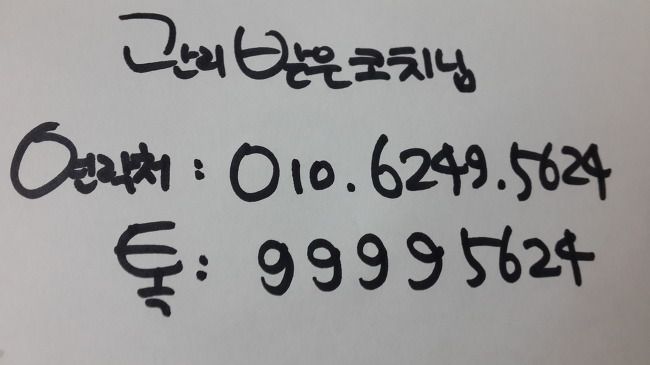 관리 받은 코치님
연락처 : 010.6249.5624
톡 : 99995624